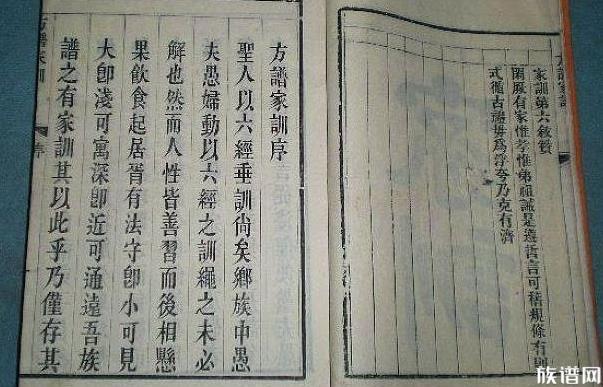 方譜家訓
家訓第六敘贊
閑厥有家惟孝惟弟祖誡是遵哲言可稽規條有則
式循古端毋爲浮夸乃克有濟
方譜家訓序
聖人以六經垂訓尚矣鄉族中愚
夫愚婦動以六經之訓繩之未必
解也然而人性皆善習而後相懸
果飲食起居胥有法守卽小可見
大卽淺可寓深卽近可通遠吾族
譜之有家訓其以此乎乃僅存其
方譜家訓
序
族谱网